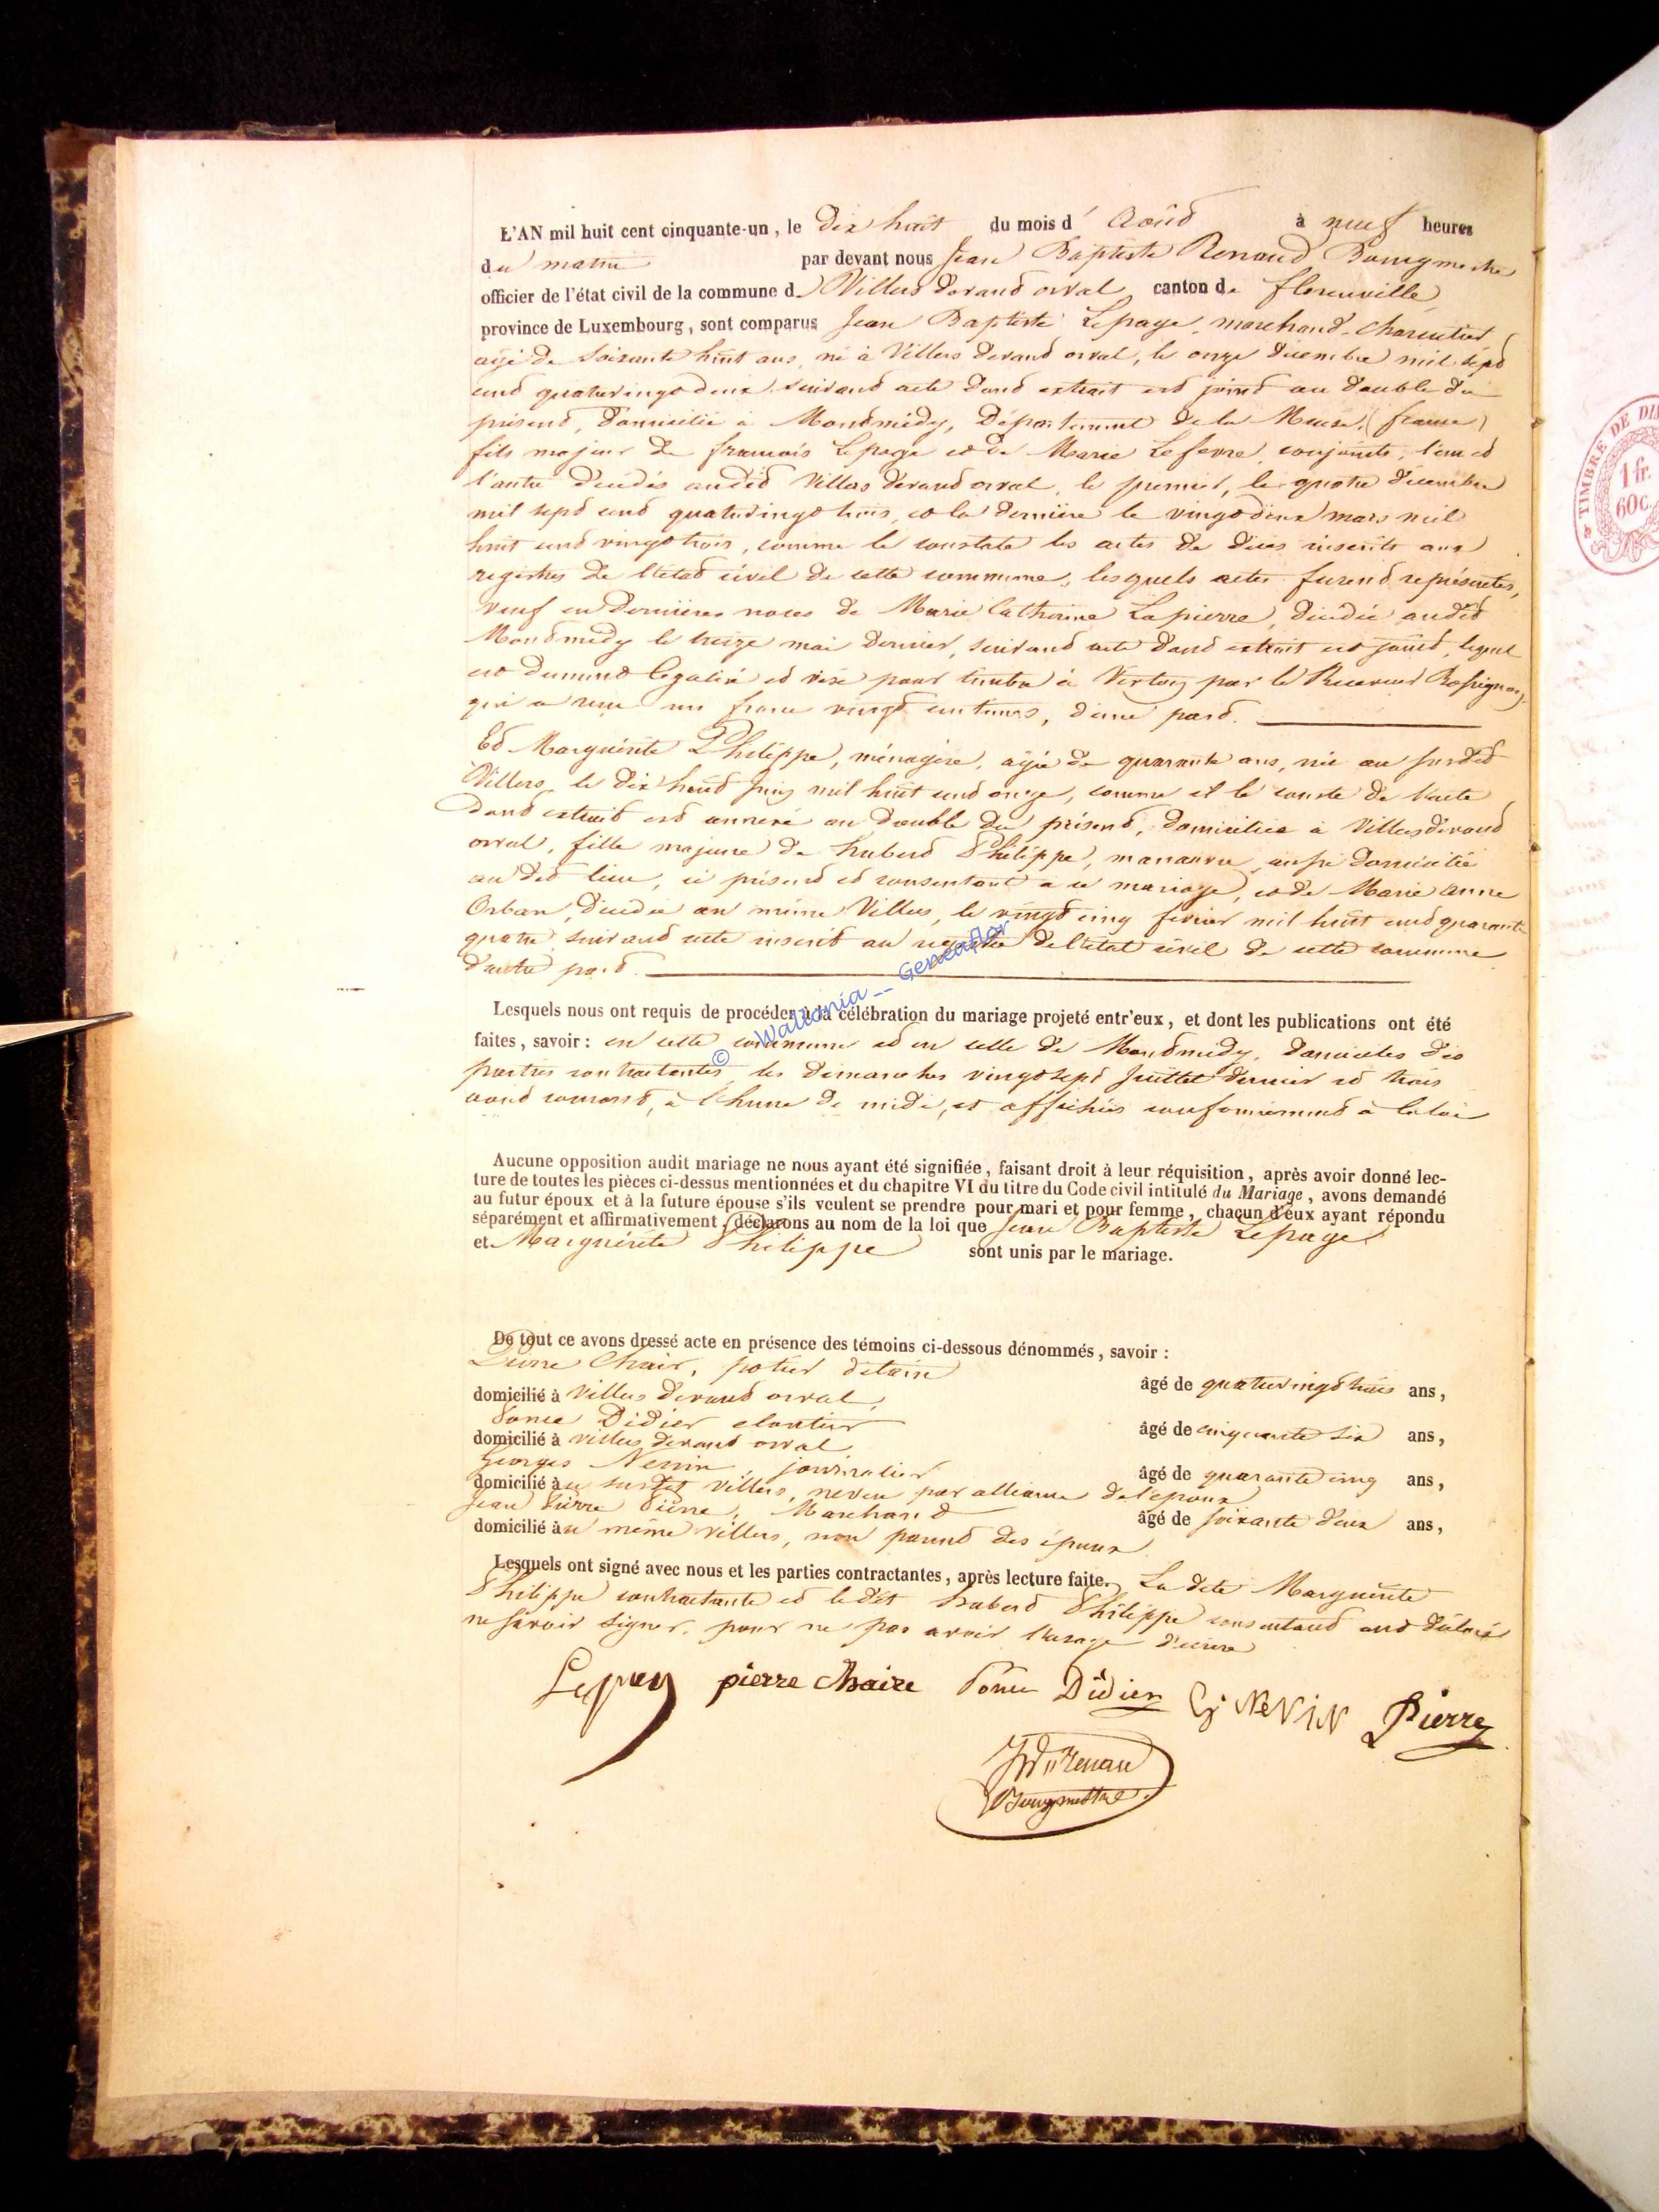 L'AN mil huit cent cinquante-un, le dix huit du mois d'Août à neuf heures
du matin par devant nous Jean Baptiste Renaud Bourgmestre
officier de l'état civil de la commune de Villers devant orval canton de florenville
province de Luxembourg, sont comparus Jean Baptiste Lepage, marchand charcutier
agé de soixante huit ans, né à Villers devant orval, le onze décembre mil sept
cent quatrevingt deux suivant acte dont extrait est joint au double du
présent, domicilié à Montmédy, Département de la Meuse, (france)
fils majeur de francois Lepage et de Marie Lefevre conjoints, l'un et
l'autre décédés audit Villers devant orval, le premier, le quatre décembre
mil sept cent quatrevingt trois, et la dernière le vingt deux mars mil
huit cent vingt trois, comme le constate les actes de décès inscrits aux
registres de l'état civil de cette commune, lesquels actes furent représentés,
veuf en dernières noces de Marie Catherine Lapierre, décédée audit
Montmédy le treize mai dernier, suivant acte dont extrait est joint, lequel
est dument légalisé et visé pour timbre à Virton par le Receveur Rossignon,
qui a recu un franc vingt centimes, d'une part.
Et Marguérite Philippe, ménagère, agée de quarante ans, née au susdit
Villers, le dix huit Juin mil huit cent onze, comme il le conste de l'acte
dont extrait est annexé au double du présent, domiciliée à Villers devant
orval, fille majeure de hubert Philippe, manœuvre, aussi domicilié
au dit lieu, ici présent et consentant à ce mariage, et de Marie anne
Orban, décédée au même Villers, le vingt cinq fevrier mil huit cent quarante
quatre suivant acte inscrit au registre de l'état civil de cette commune
d'autre part.
© Wallonia -- Geneaflor
Lesquels nous ont requis de procéder à la célébration du mariage projeté entr'eux, et dont les publications ont été
faites, savoir: en cette commune et en celle de Montmedy, domiciles des
parties contractantes les dimanches vingt sept Juillet dernier et trois
aout courant, à l'heure de midi, et affichées conformément à la loi
Aucune opposition audit mariage ne nous ayant été signifiée, faisant droit à leur réquisition, après avoir donné lec-
ture de toutes les pièces ci-dessus mentionnées et du chapitre VI du titre du Code civil intitulé du Mariage, avons demandé
au futur époux et à la future épouse s'ils veulent se prendre pour mari et pour femme, chacun d'eux ayant répondu
séparément et affirmativement, déclarons au nom de la loi que Jean Baptiste Lepage
et Marguérite Philippe sont unis par le mariage.
De tout ce avons dressé acte en présence des témoins ci-dessous dénommés, savoir:
Pierre Chair, potier detain
domicilié à Villers devant orval, âgé de quatrevingt trois ans,
Ponce Didier cloutier
domicilié à villers devant orval âgé de cinquante six ans,
Georges Nennin, journalier âgé de quarante cinq ans,
domicilié au susdit Villers, neveu par alliance de l'époux
Jean Pierre Pierre, Marchand âgé de soixante deux ans,
domicilié au même villers, non parent des époux
Lesquels ont signé avec nous et les parties contractantes, après lecture faite. La dite Marguerite
Philippe contractante et le dit hubert Philippe consentant ont déclaré
ne savoir signer, pour ne pas avoir l'usage d'ecrire
Lepage pierre chaire Ponce Didier G NeNiN Pierre
Renau
Bourgmestre
TIMBRE DE DI
1 fr.
60c.